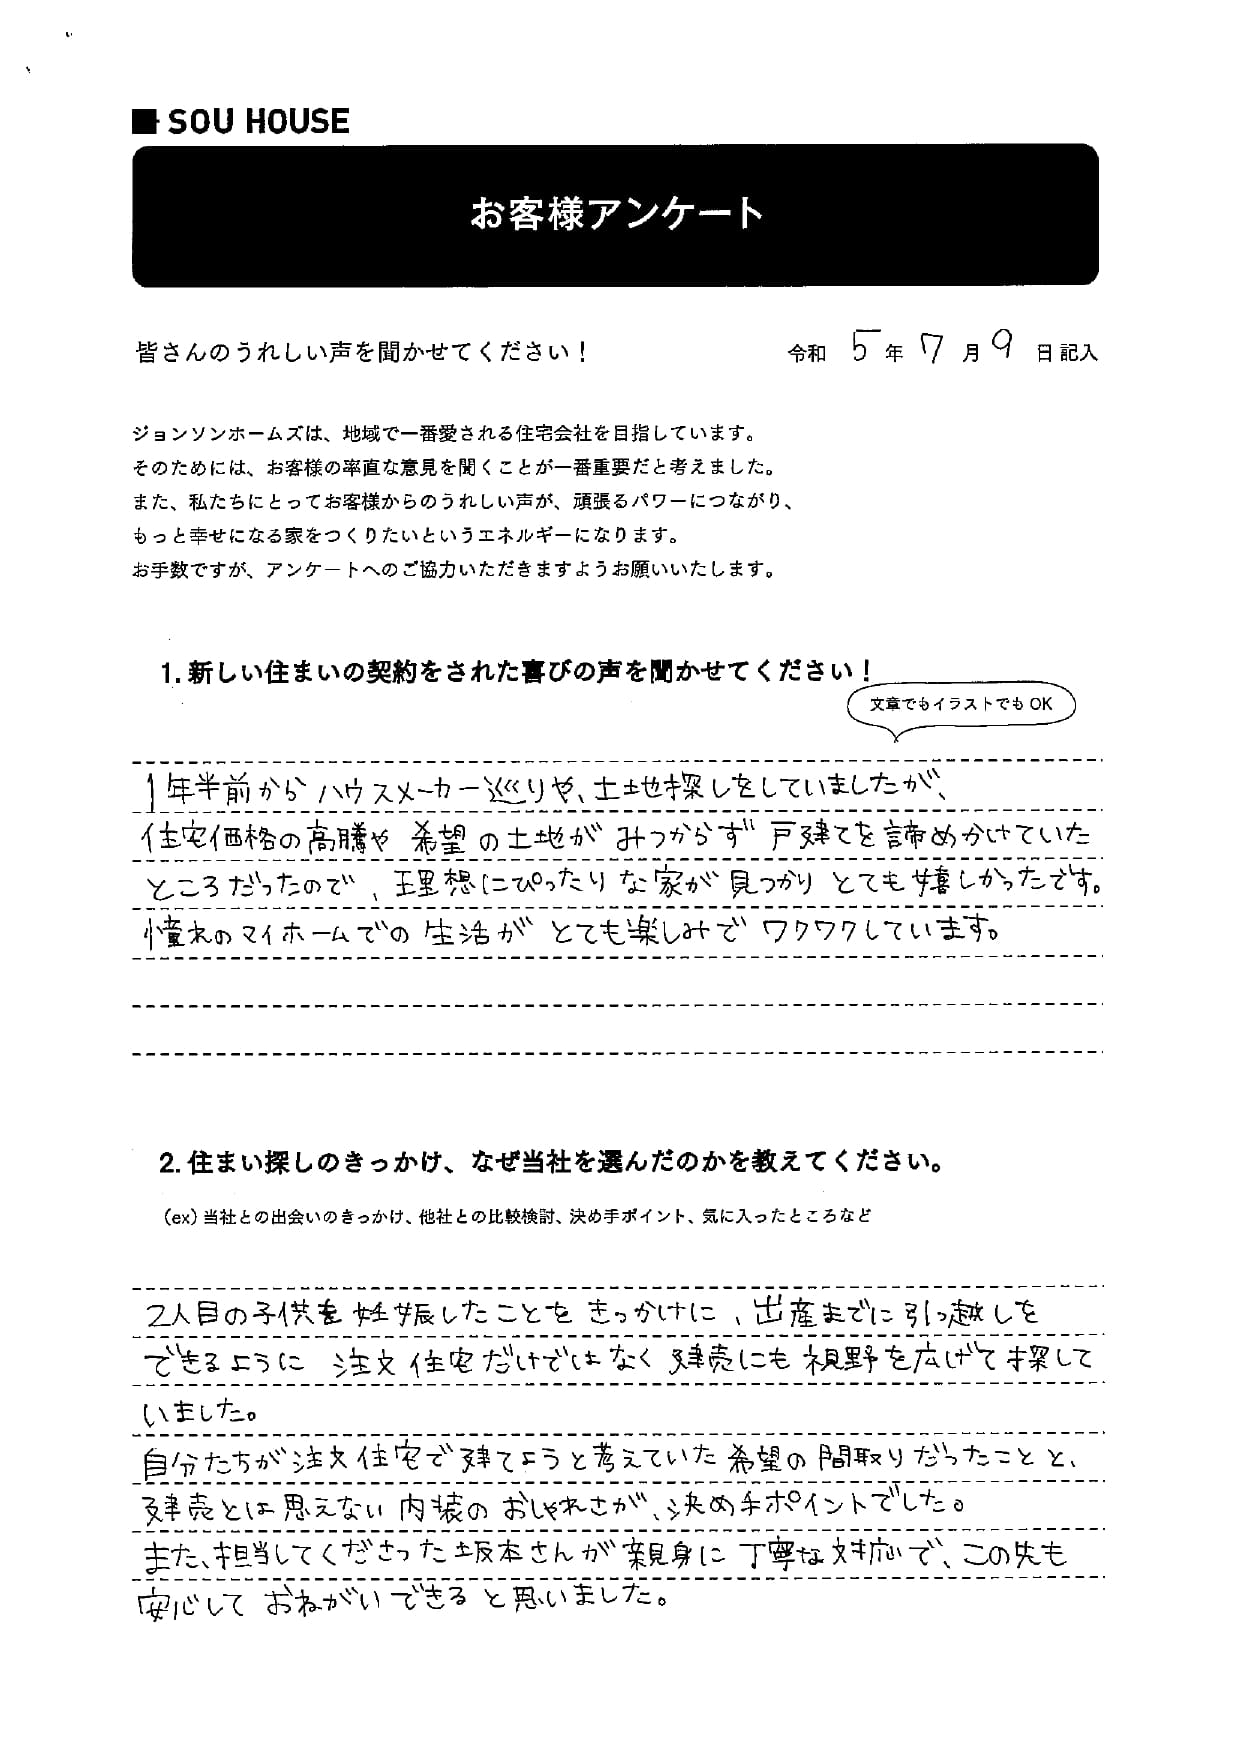 SOU HOUSE
お客様アンケート
皆さんのうれしい声を聞かせてください！
令和 5年 7月 9日記入
ジョンソンホームズは、地域で一番愛される住宅会社を目指しています。
そのためには、お客様の率直な意見を聞くことが一番重要だと考えました。
また、私たちにとってお客様からのうれしい声が、頑張るパワーにつながり、
もっと幸せになる家をつくりたいというエネルギーになります。
お手数ですが、アンケートへのご協力いただきますようお願いいたします。
1. 新しい住まいの契約をされた喜びの声を聞かせてください！
文章でもイラストでもOK
1年半前からハウスメーカー巡りや、土地探しをしていましたが、
住宅価格の高騰や希望の土地がみつからず戸建てを諦めかけていた
ところだったので、理想にぴったりな家が見つかりとても嬉しかったです。
憧れのマイホームでの生活がとても楽しみでワクワクしています。
2. 住まい探しのきっかけ、なぜ当社を選んだのかを教えてください。
（ex）当社との出会いのきっかけ、他社との比較検討、決め手ポイント、気に入ったところなど
2人目の子供を妊娠したことをきっかけに、出産までに引っ越しを
できるように注文住宅だけではなく建売にも視野を広げて探して
いました。
自分たちが注文住宅で建てようと考えていた希望の間取りだったことと、
建売とは思えない内装のおしゃれさが、決め手ポイントでした。
また、担当してくださった坂本さんが親身に丁寧な対応で、この先も
安心しておねがいできると思いました。